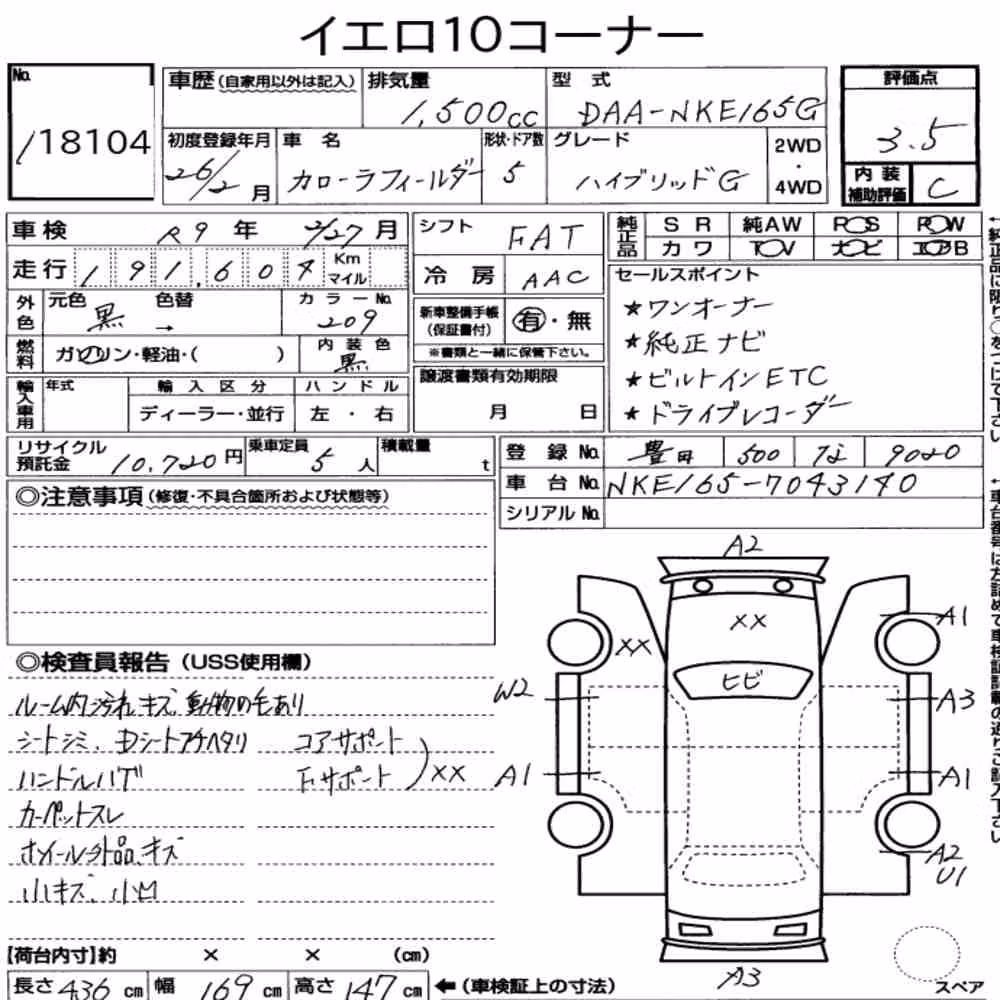 イエロ10コーナー
No.
118104
車歴(自家用以外は記入)
排気量
1,500cc
型式
DAA-NKE165G
評価点
3.5
初度登録年月
26/2月
車名
カローラフィールダー
形状・ドア数
5
グレード
ハイブリッドG
2WD
・
4WD
内装
補助評価
C
車検
R9年 2/27月
走行
191,604
Km
マイル
外色
元色
黒
色替
→
カラーNo.
209
燃料
ガソリン・軽油・( )
内装色
黒
輸入車用
年式
輸入区分
ディーラー・並行
ハンドル
左・右
シフト
FAT
冷房
AAC
新車整備手帳
(保証書付)
有・無
※書類と一緒に保管下さい。
譲渡書類有効期限
月 日
純正品
SR
純AW
PS
PW
カワ
TV
ナビ
エアB
セールスポイント
★ワンオーナー
★純正ナビ
★ビルトインETC
★ドライブレコーダー
リサイクル
預託金
10,720円
乗車定員
5人
積載量
t
登録No.
豊田
500
な
9020
車台No.
NKE165-7043140
シリアルNo.
◎注意事項(修復・不具合箇所および状態等)
◎検査員報告(USS使用欄)
ルーム内汚れキズ、動物の毛あり
シートシミ、Dシートフチヘタリ
コアサポート
ハンドルハゲ
Fサポート
)XX
カーペットスレ
ホイール外品、キズ
小キズ、小凹
A2
XX
XX
ヒビ
A1
W2
A3
A1
A1
A2
U1
A3
スペア
【荷台内寸】約 × × (cm)
長さ436cm
幅169cm
高さ147cm
←(車検証上の寸法)